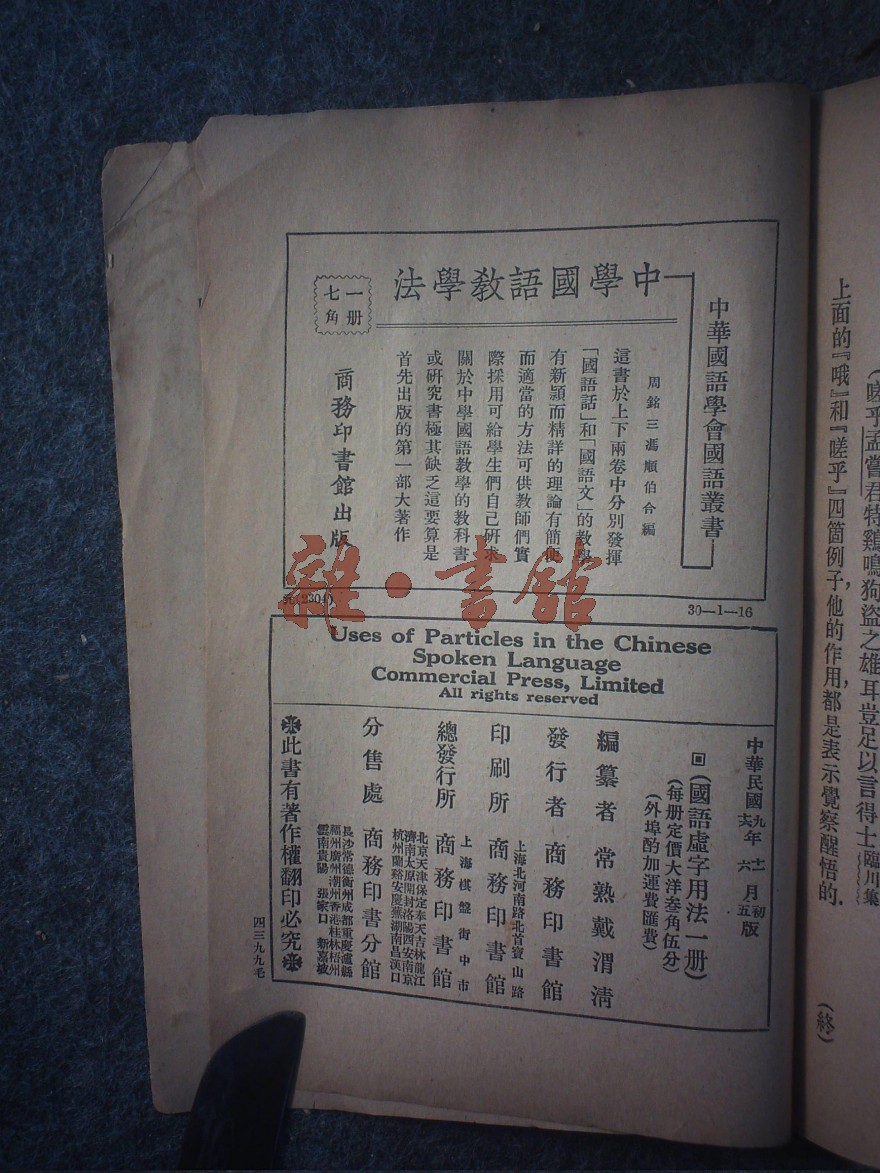 中華國語學會國語叢書
中學國語教學法
周銘三馮順伯合編
這書於上下兩卷中分別發揮
「國語話」和「國語文」的教學
有新頴而精詳的理論有簡便
而適當的方法可供教師們實
際採用可給學生們自己研求
關於中學國語教學的教科書
或研究書極其缺乏這要算是
首先出版的第一部大著作
一冊
七角
商務印書館出版
元(2304)
30—1—16
雜·書舘
Uses of Particles in the Chinese
Spoken Language
Commercial Press, Limited
All rights reserved
中華民國九年十二月初版
六五
(國語虛字用法一册)
(每册定價大洋叁角伍分)
(外埠酌加運費匯費)
編纂者 常熟戴渭清
發行者 商務印書館
上海北河南路北首寶山路
印刷所 商務印書館
上海棋盤街中市
總發行所 商務印書館
北京天津保定奉天吉林龍江
濟南太原開封洛陽西安南京
杭州蘭谿安慶蕪湖南昌漢口
分售處 商務印書分館
長沙常德衡州成都重慶瀘縣
福州廣州潮州香港桂林梧州
雲南貴陽 張家口 新嘉坡
※此書有著作權翻印必究※
四三九九毛
(嗟乎孟嘗君特鷄鳴狗盜之雄耳豈足以言得士臨川集
上面的『哦』和『嗟乎』四箇例子,他的作用,都是表示覺察醒悟的.
(終)